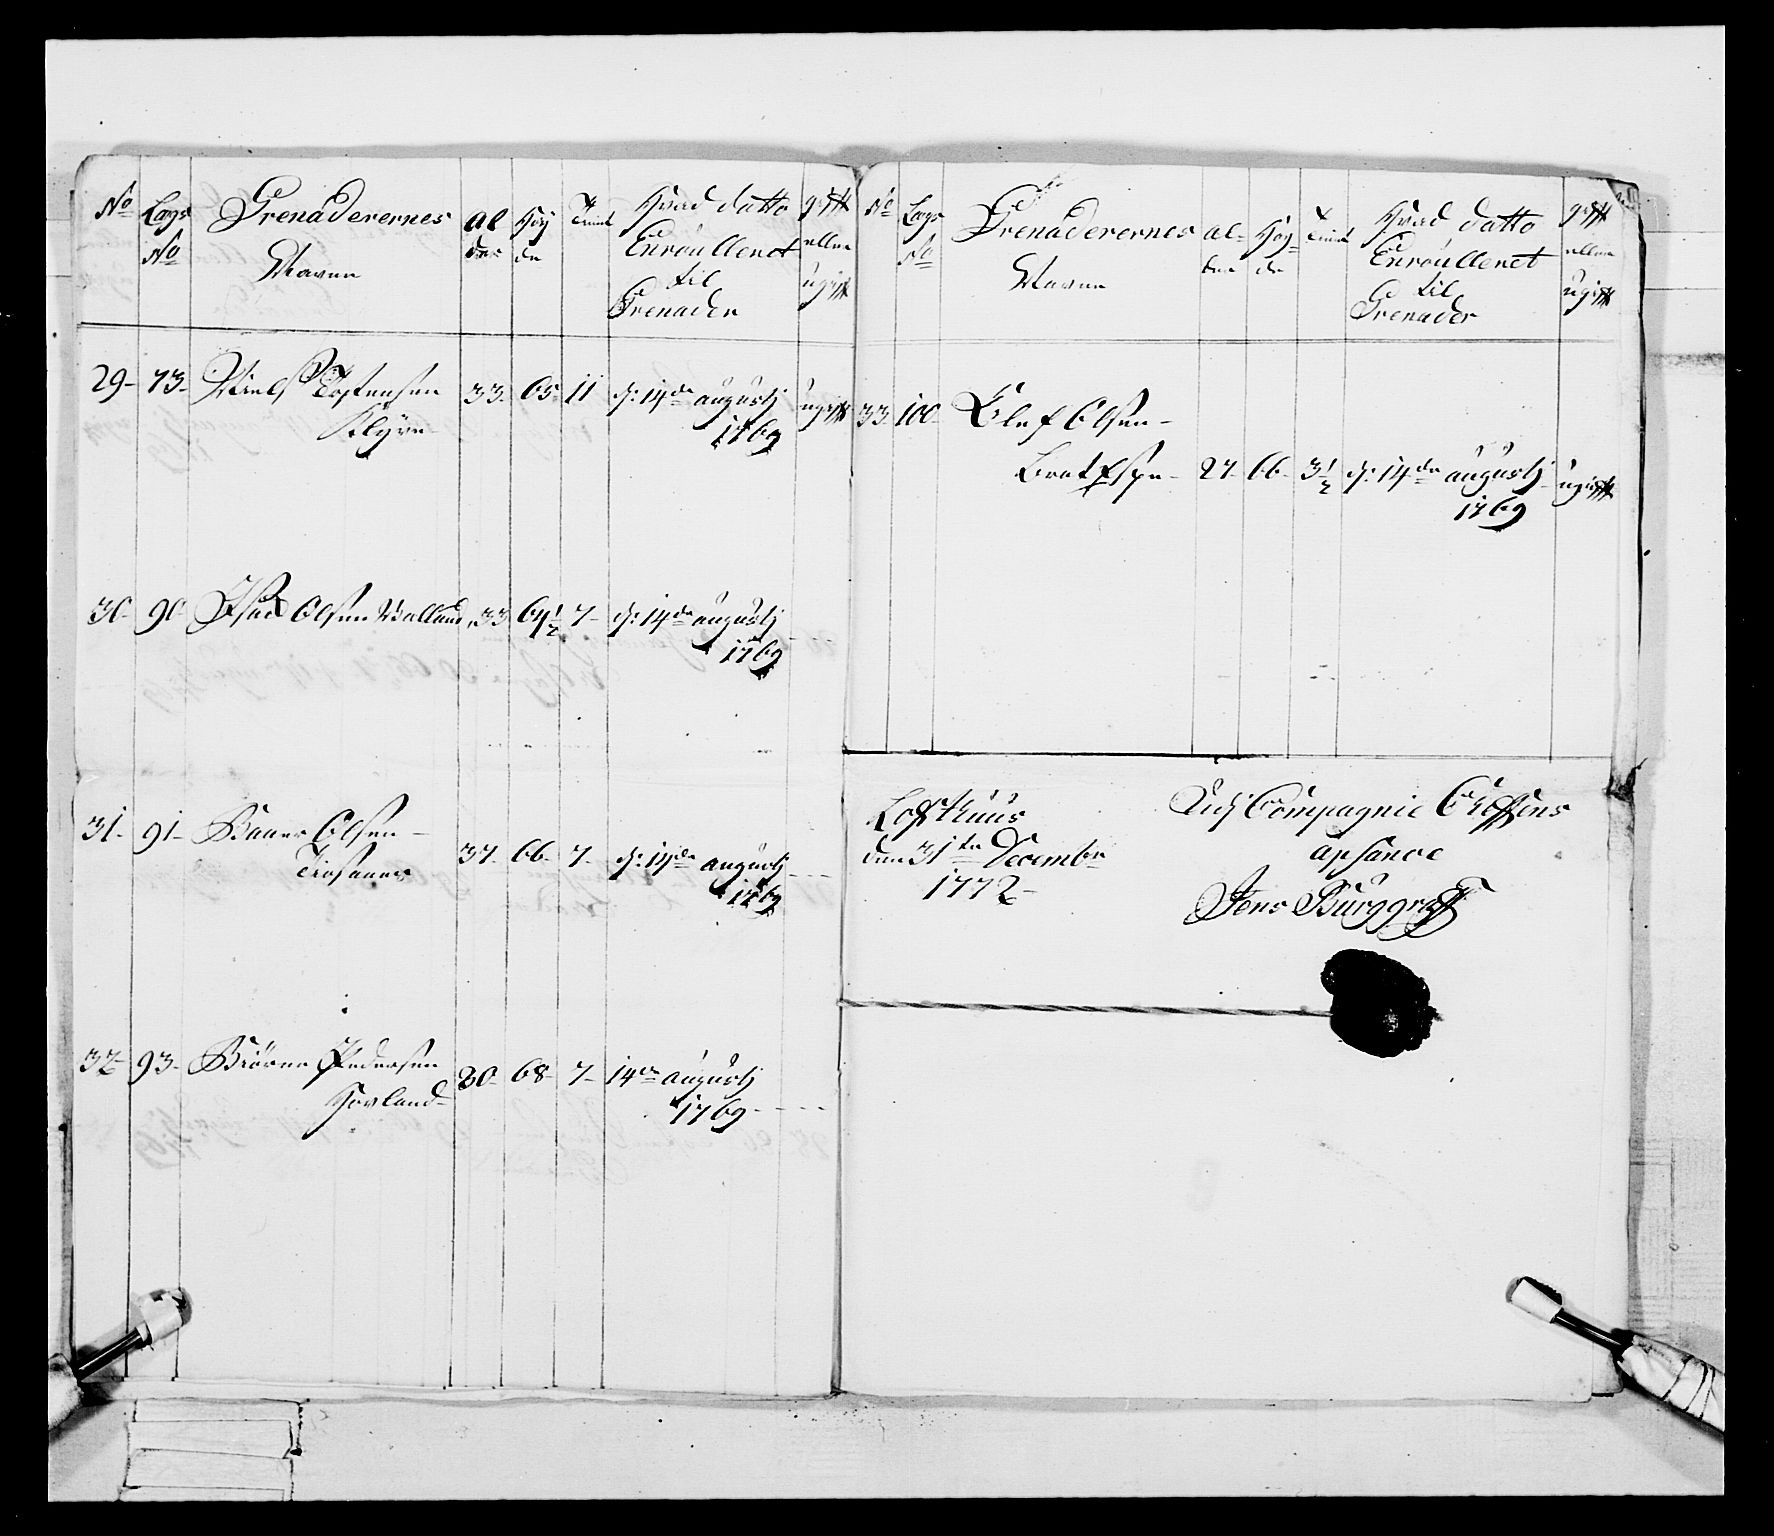 No Lægs No Grenaderernes Navne Al der Høy de Tient Hvad datto Enroulleret til Grenader gift eller ugift
29- 73- Niels Tostensen Klyve- 33- 65- 11 d: 14de augustj 1769 ugift
30- 90- Isac Olsen 33 64½ 7- d: 14de augustj 1769
31- 91- Olsen- 37- 66- 7- d: 14de augustj 1769 - - -
32- 93- Biørne Pedersen Hovland- 30- 68- 7- 14de augustj 1769 - - - -
No Lægs No Grenaderernes Navne al- der Høy- de Tient Hvad datto Enroulleret til Grenader gift eller ugift
33- 100- Olef Olsen-
27- 66- 3½ d: 14de augustj 1769 ugift
Lofthuus
den 31te Decembr
1772-
Udj Compagnie Cheffens
afsance
Jens Burggraff